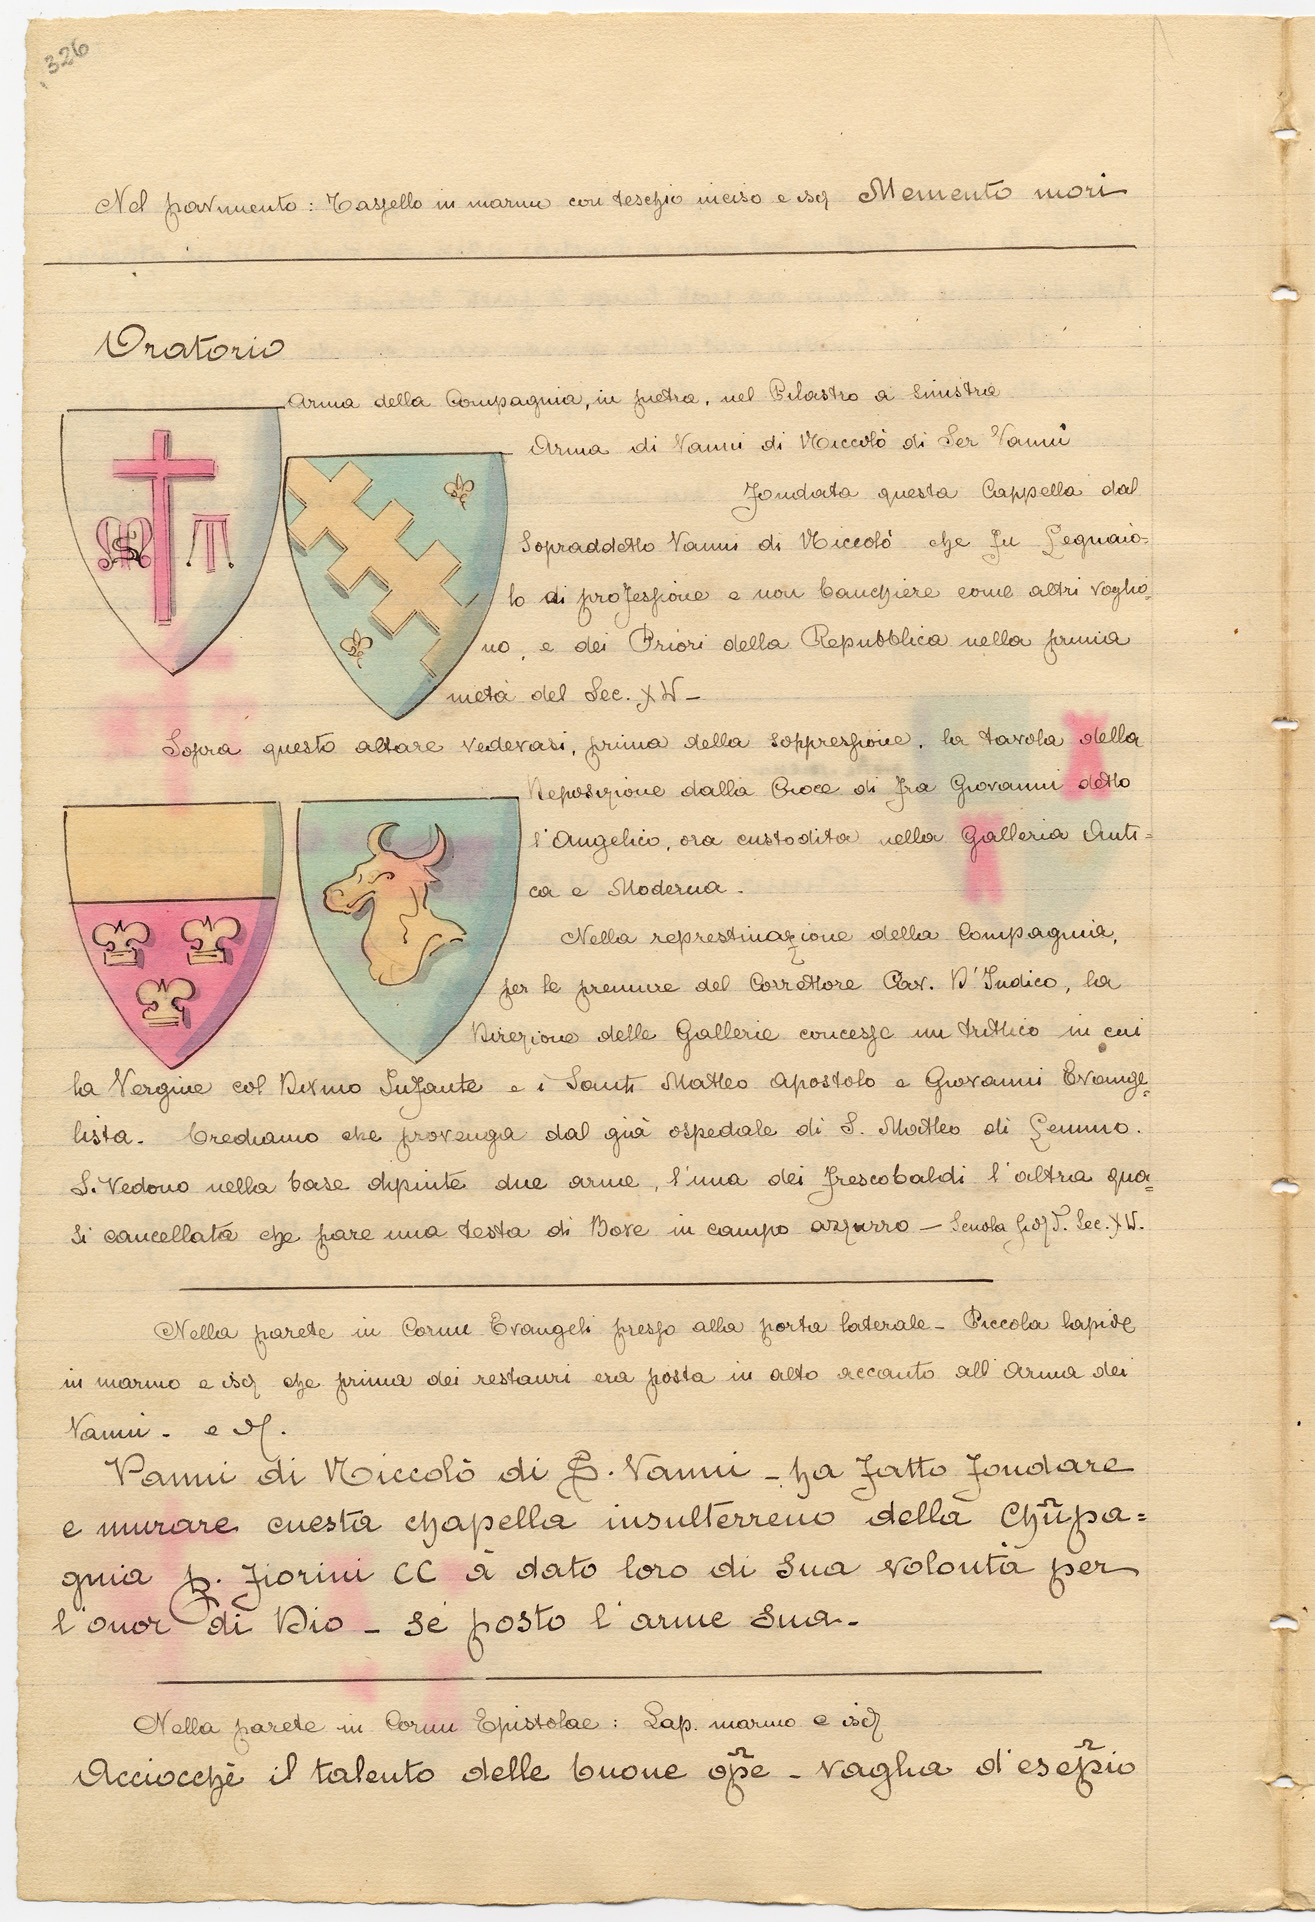 326
Nel pavimento: Tassello in marmo con teschio inciso e isc Memento mori
Oratorio
Arma della Compagnia, in pietra, nel Pilastro a sinistra
Arma di Vanni di Niccolò di Ser Vanni
Fondata questa Cappella dal
sopraddetto Vanni di Niccolò che fu Legnaiò-
lo di professione e non banchiere come altri voglio=
no, e dei Priori della Repubblica nella prima
metà del Sec. XV-
Sopra questo altare vedevasi, prima della soppressione, la tavola della
Deposizione dalla Croce di Fra Giovanni detto
l'Angelico, ora custodita nella Galleria Anti=
ca e Moderna.
Nella represtinazione della Compagnia,
per le premure del Correttore Cav. D'Indico, la
Direzione delle Gallerie concesse un trittico in cui
la Vergine col Divino Infante e i Santi Matteo apostolo e Giovanni Evange=
lista. Crediamo che provenga dal già ospedale di S. Matteo di Lemmo.
Si Vedono nella base dipinte due arme, l'una dei Frescobaldi l'altra qua=
si cancellata che pare una testa di Bove in campo azzurro - Scuola Sec. XV.
Nella parete in Cornu Evangeli presso alla porta laterale - Piccola lapide
in marmo e isc che prima dei restauri era posta in alto accanto all'Arma dei
Vanni - e
Vanni di Niccolò di S. Vanni - ha fatto fondare
e murare cuesta chapella insulterreno della Chũpa=
gnia p. fiorini CC à dato loro di sua volontà per
l'onor di Dio - sé posto l'arme sua -
Nella parete in Cornu Epistolae: Lap. marmo e isc
Acciocchè il talento delle buone op̃e - vaglia d'esep̃io